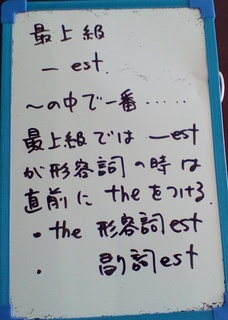 最上級
ー est
〜の中で一番……
最上級では ー est
が形容詞の時は
直前に theをつける
・the 形容詞est
・ 副詞est